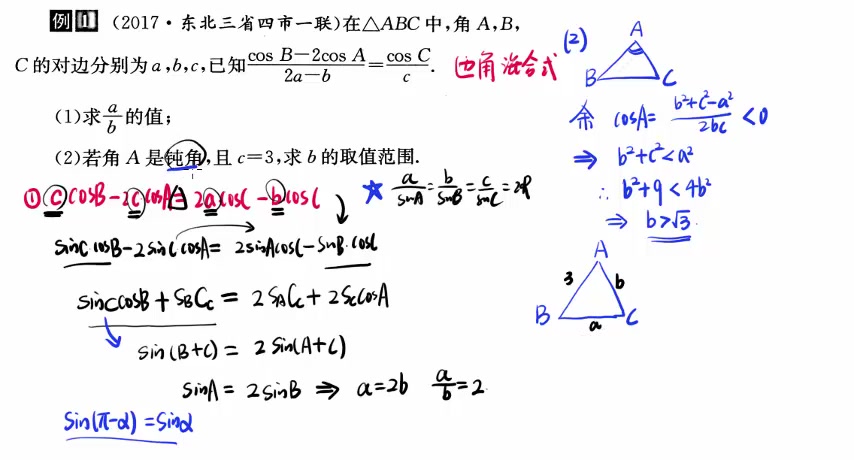 例1 (2017·东北三省四市一联)在△ABC中,角A,B,
C的对边分别为a,b,c,已知\frac{cos B-2cos A}{2a-b}=\frac{cos C}{c}. 边角混合式
(1)求\frac{a}{b}的值;
(2)若角A是钝角,且c=3,求b的取值范围.
① c cosB-2c cosA = 2a cosC - b cosC
☆ \frac{a}{sinA}=\frac{b}{sinB}=\frac{c}{sinC}=2R
sinC cosB-2sinC cosA= 2sinAcosC-sinB·cosC
sinCcosB + SBCc = 2SACc + 2SccosA
sin(B+C) = 2sin(A+C)
sinA = 2sinB ⇒ a=2b \frac{a}{b}=2
sin(π-α)=sinα
(2)
A
B C
余 cosA= \frac{b²+c²-a²}{2bc} <0
⇒ b²+c²<a²
∴ b²+9<4b²
⇒ b>√3
A
3 b
B a C